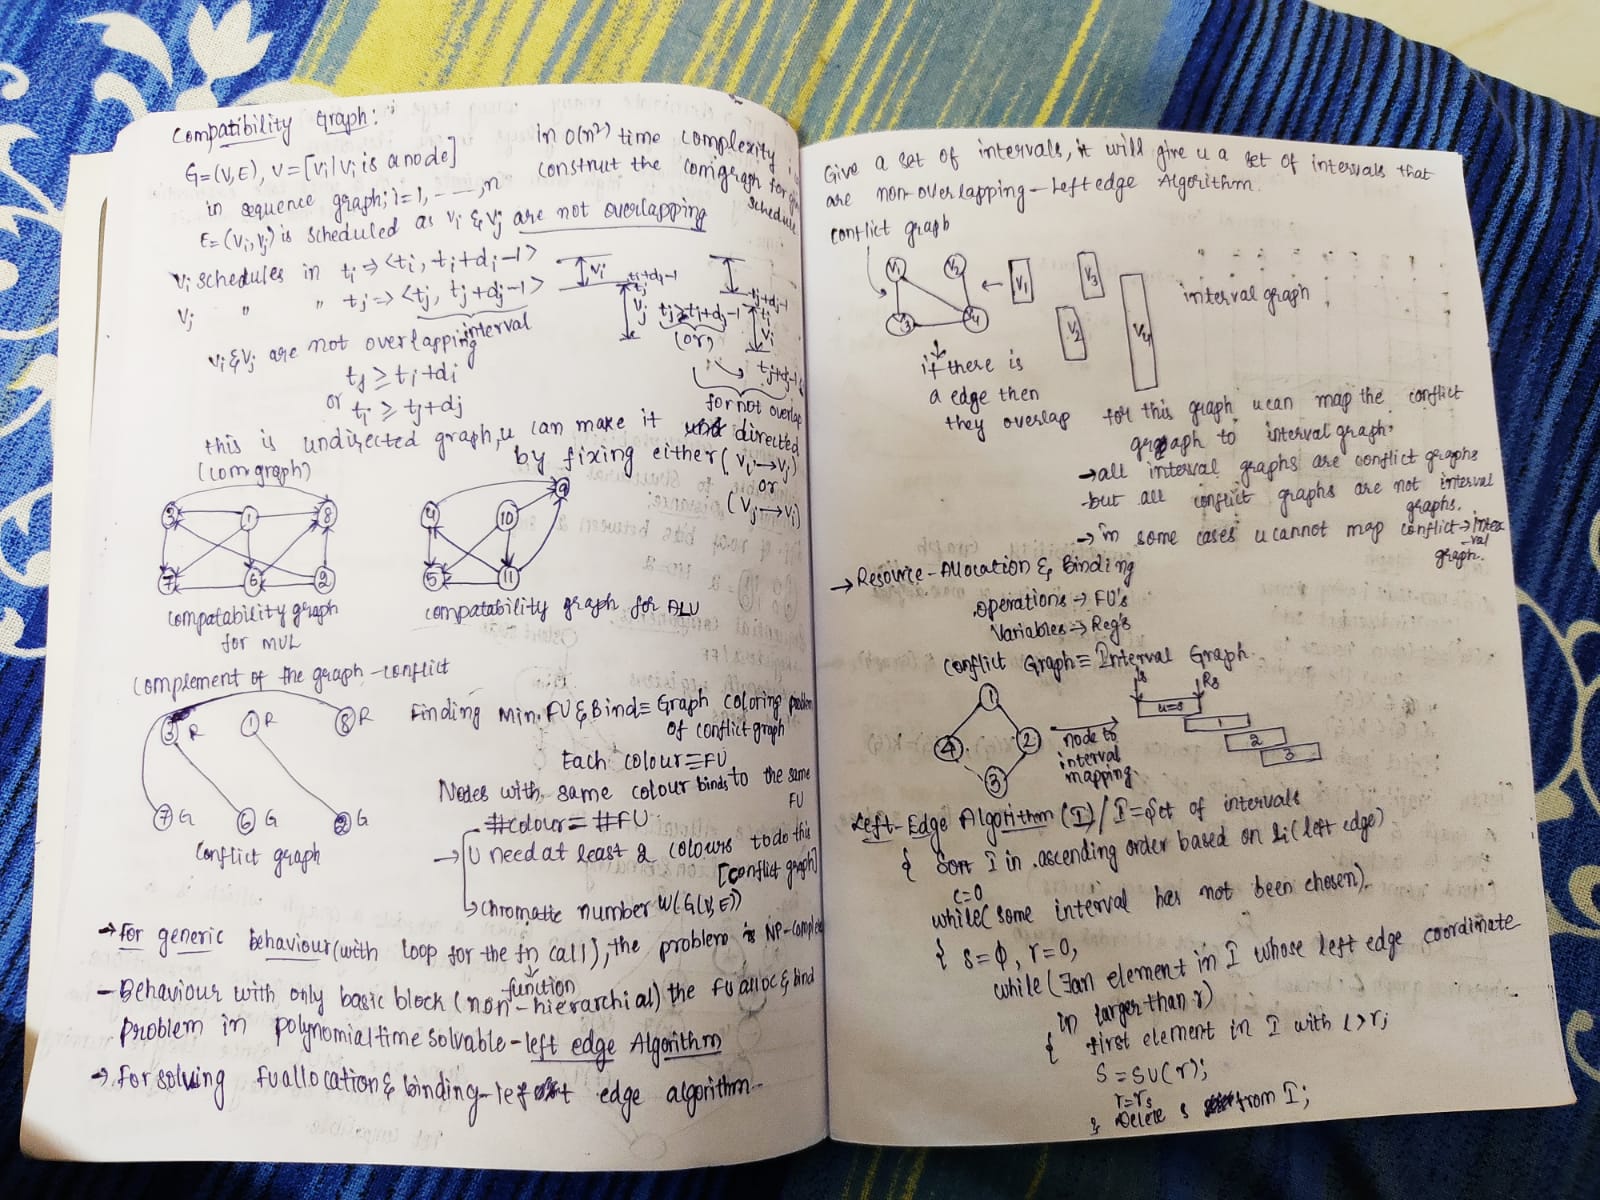 Compatibility Graph:
G=(V,E), V=[Vi/Vi is a node]
in sequence graph; i=1, ----,n
E=(Vi,Vj) is scheduled as Vi & Vj are not overlapping
in O(n²) time complexity
construct the comigraph for
schedule
Vi schedules in ti ⇒ <ti, ti+di-1>
Vj " " tj ⇒ <tj, tj+dj-1>
interval
Vi & Vj are not overlapping
tj ≥ ti+di
or ti ≥ tj+dj
Vi
ti+di-1
tj
Vj
(or)
tj+dj-1
ti
Vi
for not overlap
this is undirected graph, u can make it directed
(comgraph)
by fixing either (Vi→Vj)
or
(Vj→Vi)
3 1 8
7 6 2
compatability graph
for MUL
4 10 9
5 11
compatability graph for ALU
complement of the graph - conflict
3 R 1 R 8 R
7 G 6 G 2 G
Conflict graph
Finding Min. FU & Bind ≡ Graph coloring problem
of conflict graph
Each colour ≡ FU
Nodes with same colour binds to the same
FU
#colour = #FU
→ U need at least 2 colours to do this
[conflict graph]
→ chromatic number W(G(V,E))
→ For generic behaviour (with loop for the fn call), the problem is NP-complete
function
- Behaviour with only basic block (non-hierarchial) the FU alloc & bind
problem in polynomial time solvable - left edge Algorithm
→ for solving FU allocation & binding - left edge algorithm -
Give a set of intervals, it will give u a set of intervals that
are non-overlapping - Left edge Algorithm.
conflict graph
V1 V2
V3 V4
V1 V3
V2 V4
interval graph
if there is
a edge then
they overlap
for this graph u can map the conflict
graph to interval graph.
→ all interval graphs are conflict graphs
- but all conflict graphs are not interval
graphs.
→ in some cases u cannot map conflict → inter
-val
graph.
→ Resource-Allocation & Binding
operations → FU's
Variables → Reg's
Conflict Graph ≡ Interval Graph
1
4 2
3
node to
interval
mapping.
ls Rs
1
2
3
Left-Edge Algorithm (I) / I = set of intervals
{ Sort I in ascending order based on li (left edge)
c=0
while (some interval has not been chosen).
{ s=ϕ, r=0,
while (∃ an element in I whose left edge coordinate
in larger than r)
{ first element in I with l>r;
S = SU(r);
r=rs
} Delete s from I;